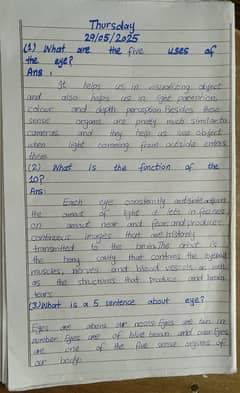 Thursday
29/05/2025
(1) What are the five uses of
the eye?
Ans:
It helps us in visualizing object
and also helps us in light perception,
colour and depth perception. Besides these
sense organs are pretty much similar to
cameras and they help us see object
when light comming from outside enters
them.
(2) What is the function of the
10?
Ans:
Each eye constantly
the amount of light it lets in focuses
on near and fears and produces
continuous images that are instantly
transmitted to the brain. The orbit is
the bony cavity that contains the eyeball
muscles, nerves and blood vessels as well
as the structures that produce and
tears.
(3) What is a 5 sentence about eye?
Eyes are above our nose. Eyes are two in
number. Eyes are of blue brown and Eyes
are one of the five sense organs of
our body.